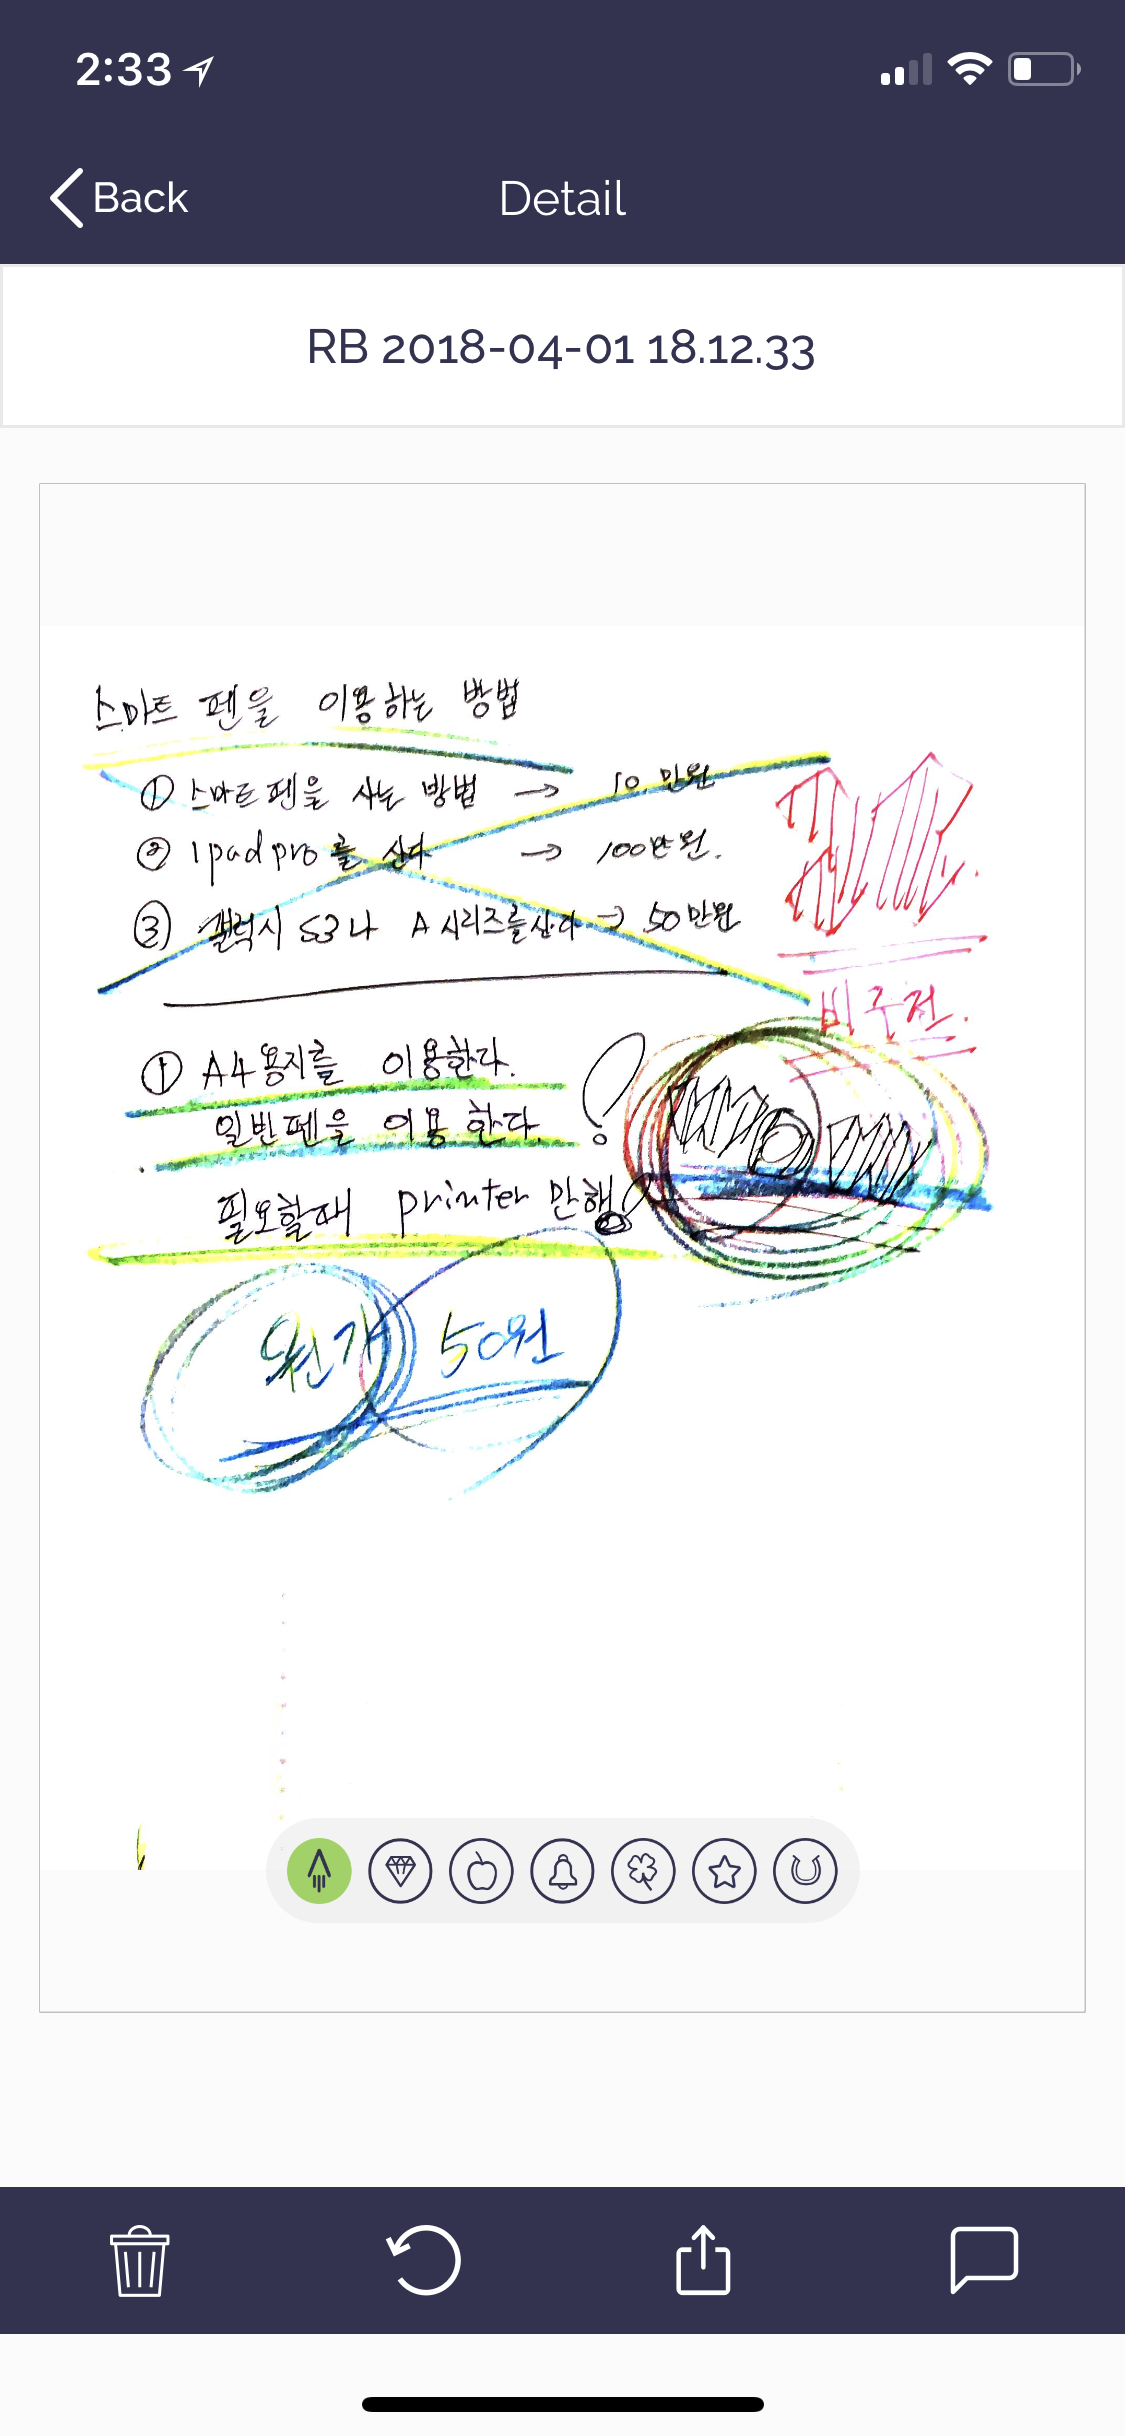 2:33
Back
Detail
RB 2018-04-01 18.12.33
스마트 펜을 이용하는 방법
① 스마트펜을 사는 방법 → 10 만원
② Ipad pro를 산다 → 100만원.
③ 갤럭시 S3나 A시리즈를 산다 → 50만원
① A4용지를 이용한다.
일반펜을 이용 한다.
필요할때 printer 만해
50원